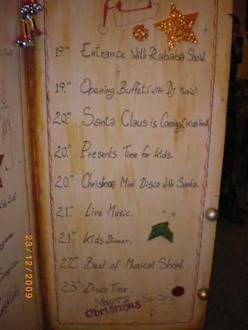 19.'' Entrance With Rababa Show.
19.'' Opening Buffet (with Dj Music)
20.'' Santa Claus is Coming (
20.'' Presents Time for Kids.
20.'' Christmas Mini Disco With Santa.
21.'' Live Music.
21.'' Kids Dinner.
22.'' Best of Musical Show.
23.'' Disco Time.
Christmas
23/12/2009